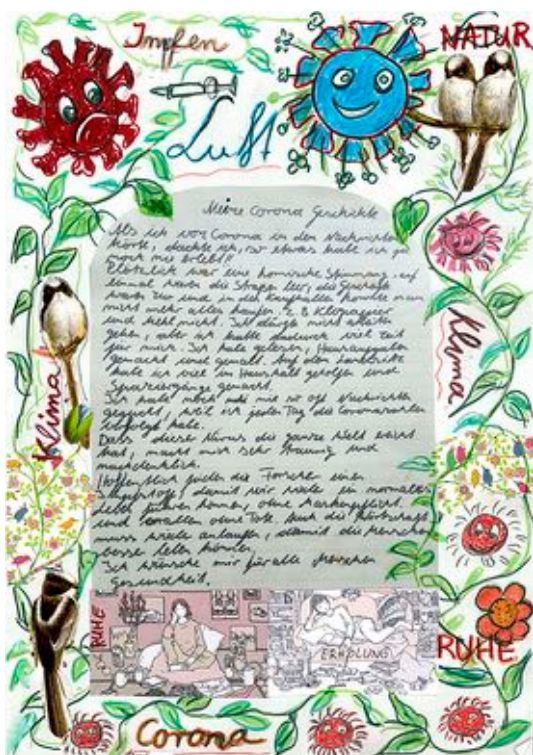 Impfen
NATUR
Luft
Meine Corona Geschichte
Als ich von Corona in den Nachrichten
hörte, dachte ich, so etwas habe ich ja
noch nie erlebt!!
Plötzlich war eine komische Stimmung, auf
einmal waren die Straßen leer, die Geschäfte
waren zu und in den Kaufhallen konnte man
nicht mehr alles kaufen. z.B. Klopapier
und Mehl nicht. Ich durfte nicht arbeiten
gehen, aber ich hatte dadurch viel Zeit
für mich. Ich habe gelesen, Hausaufgaben
gemacht und gemalt. Auf der
habe ich viel im Haushalt geholfen und
Spaziergänge gemacht.
Ich habe noch nie so oft Nachrichten
geguckt, weil ich jeden Tag die Coronazahlen
verfolgt habe.
Dass dieser Virus die ganze Welt
hat, macht mich sehr traurig und
nachdenklich.
Hoffentlich finden die Forscher einen
Impfstoff, damit wir wieder ein normales
Leben führen können, ohne Maskenpflicht
und vor allem ohne Tote. Auch die Wirtschaft
muss wieder anlaufen, damit die Menschen
besser leben können.
Ich wünsche mir für alle Menschen
Gesundheit.
Klima
Klima
RUHE
ERHOLUNG
RUHE
Corona